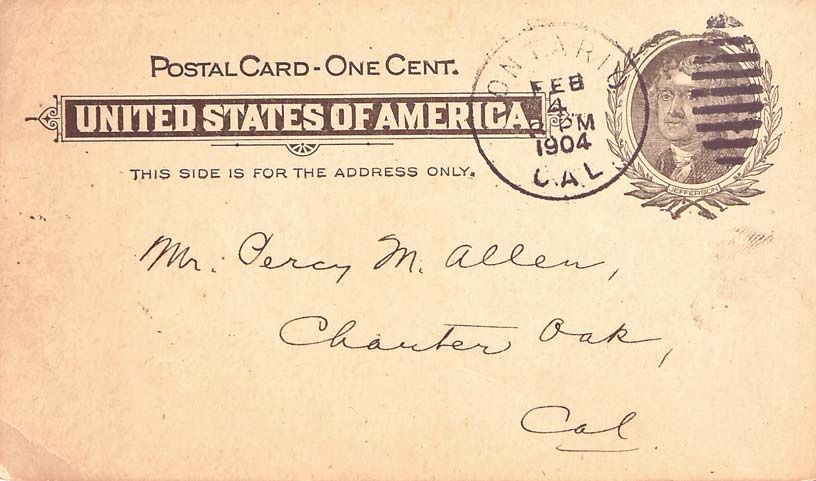 POSTAL CARD - ONE CENT.
UNITED STATES OF AMERICA.
THIS SIDE IS FOR THE ADDRESS ONLY.
ONTARIO
FEB
4
PM
1904
CAL.
JEFFERSON
Mr. Percy M. Allen,
Charter Oak,
Cal.